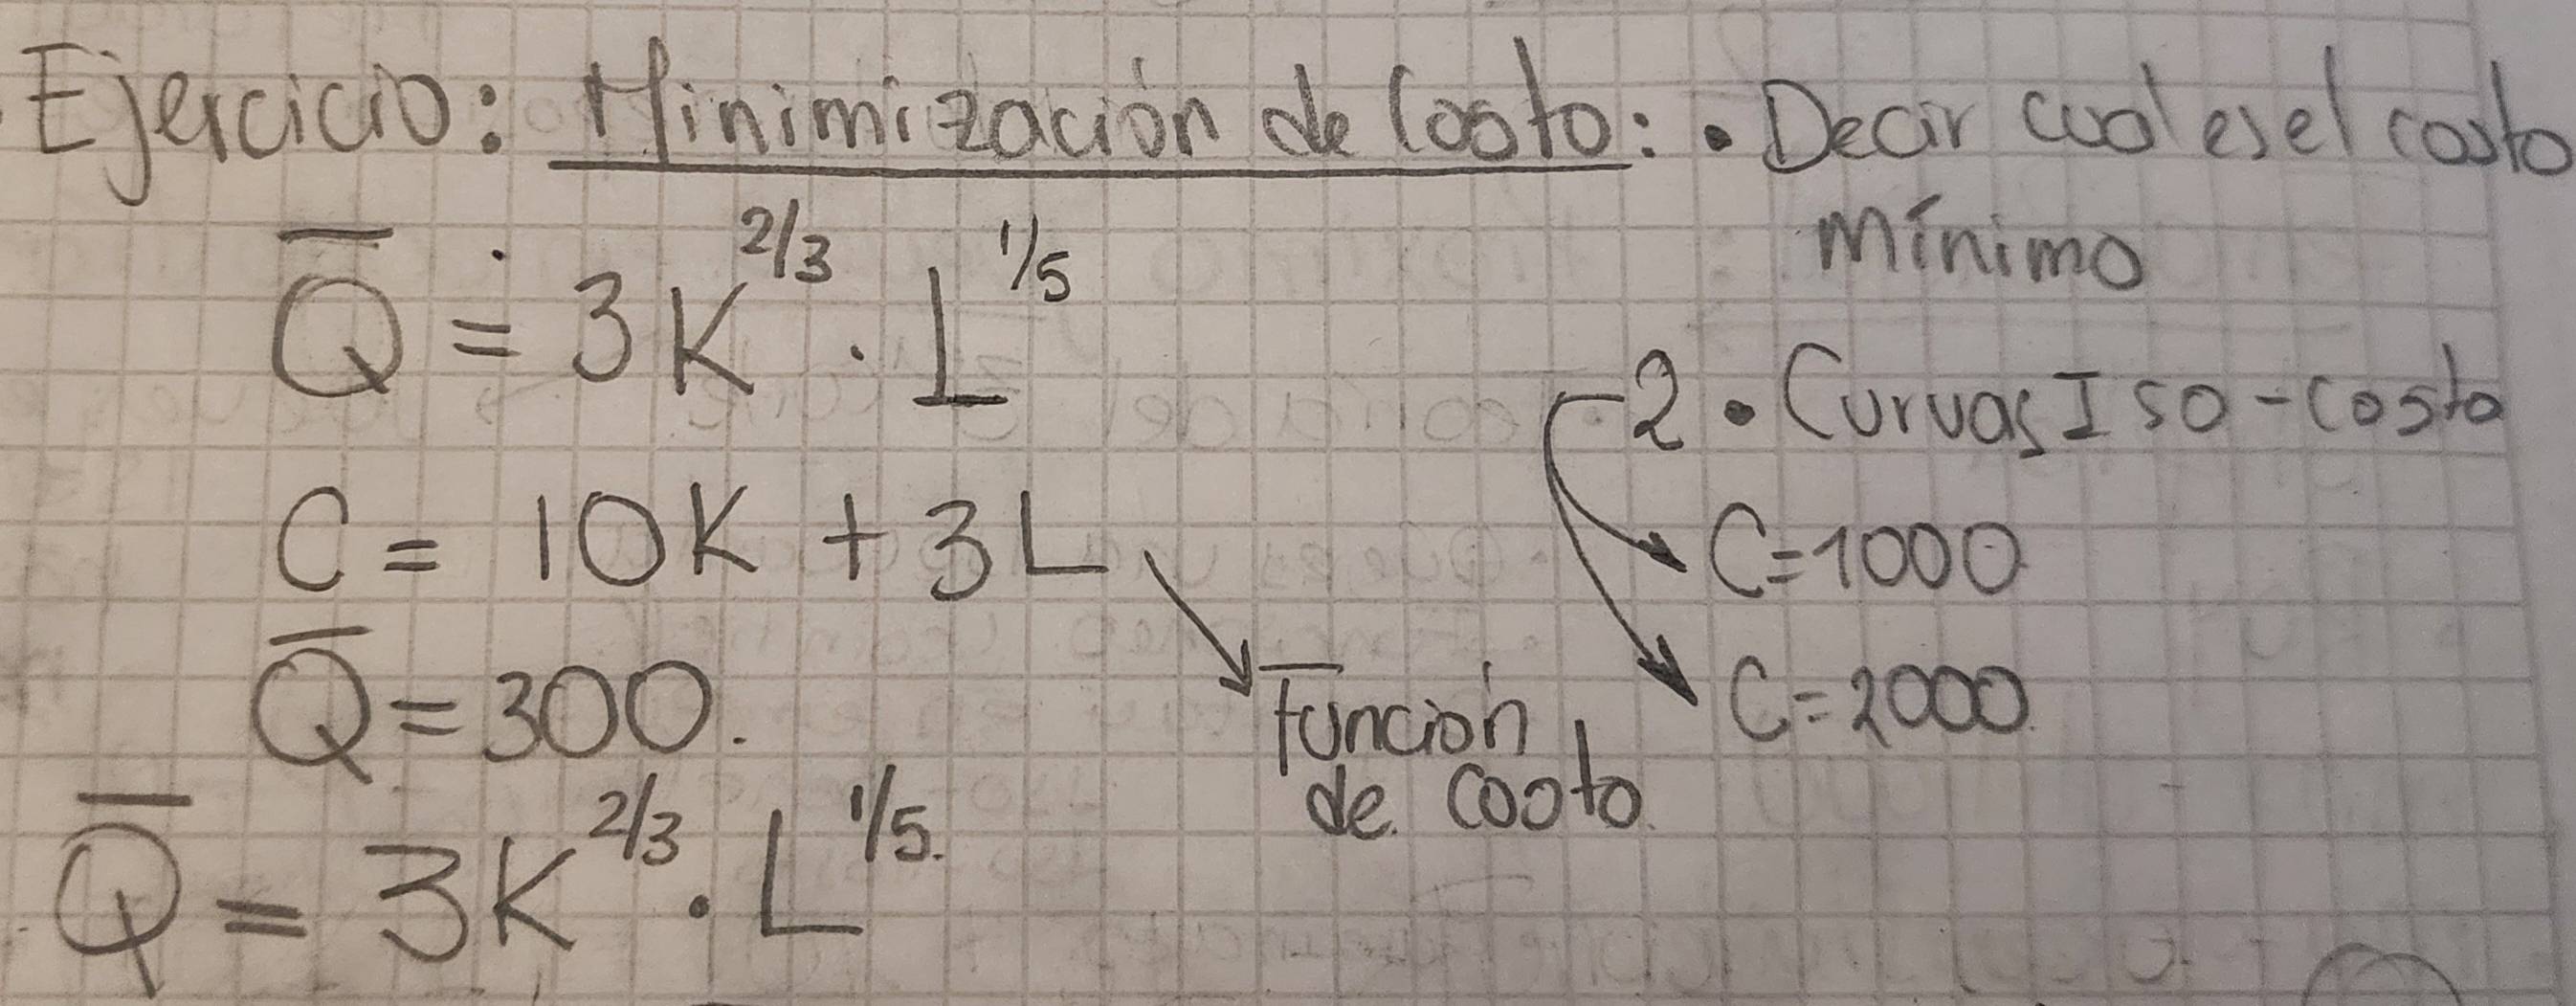 Ejercicio: Minimización de Costo: • Decir cual es el costo
mínimo
Q̅ = 3K^2/3 · L^1/5
2 • Curvas Iso-costo
C = 10K + 3L
C=1000
Q̅ = 300.
Función
de costo
C=2000
Q̅ = 3K^2/3 · L^1/5.